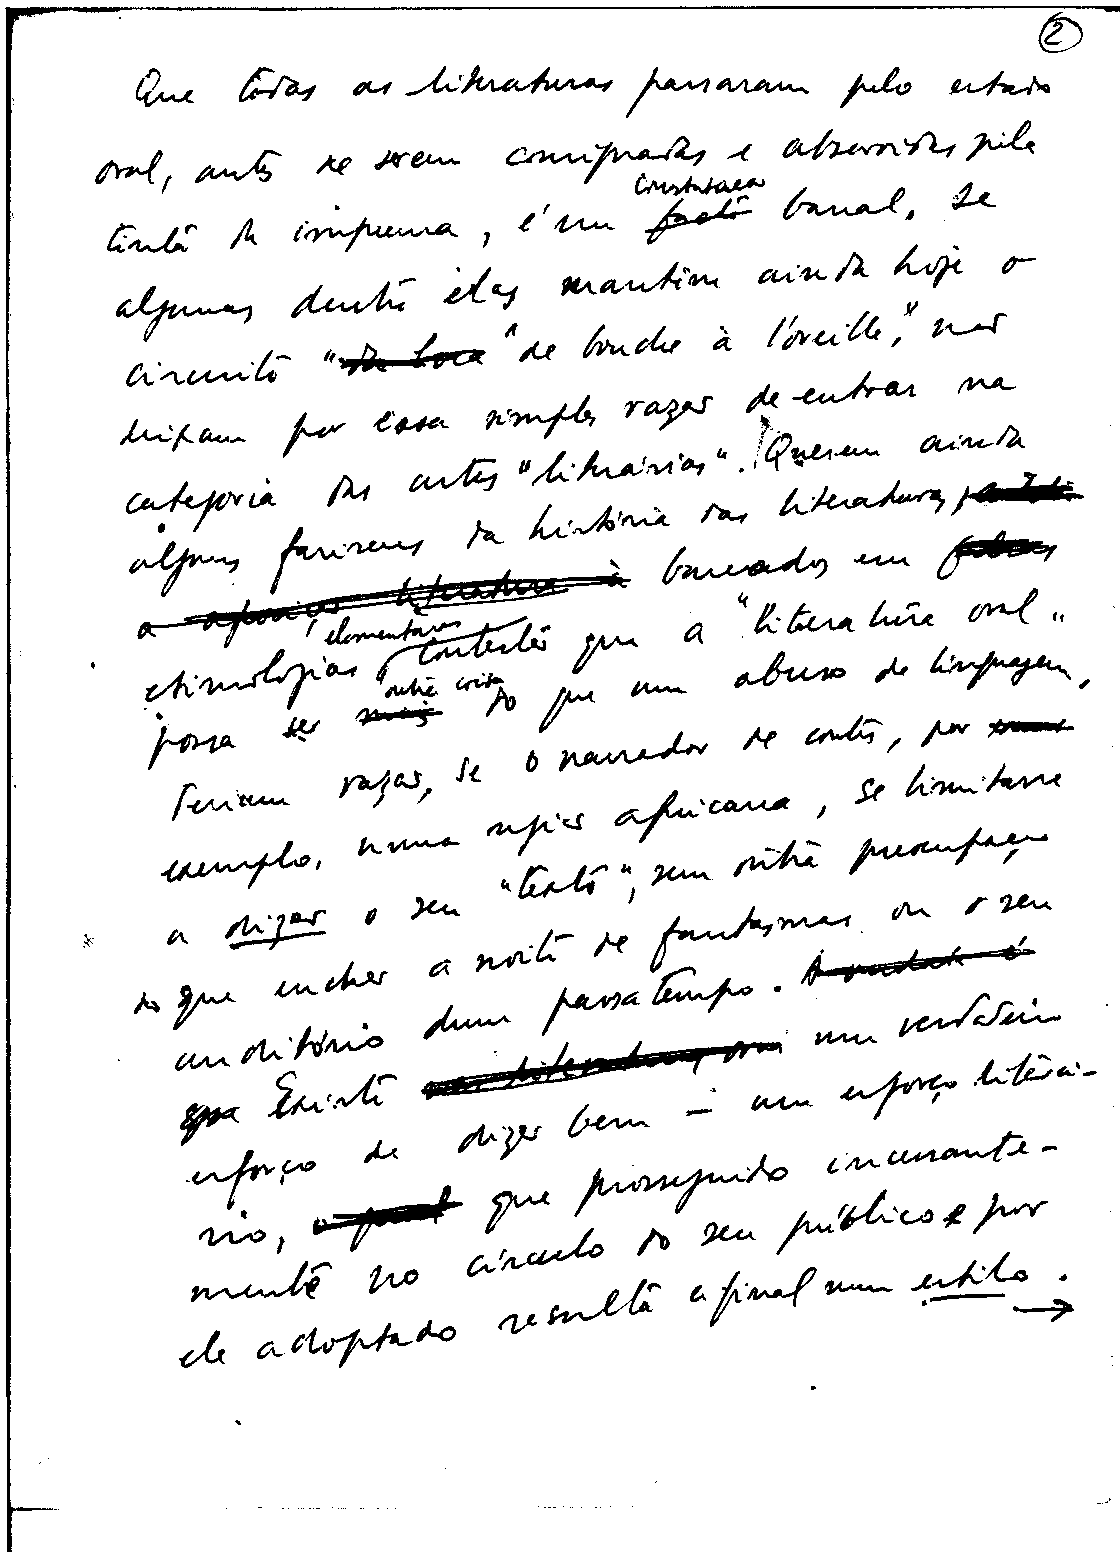 2
Que todas as literaturas passaram pelo estado
oral, antes de serem consignadas e absorvidas pela
constatação
tinta da imprensa, é um facto banal. Se
algumas dentre elas mantêm ainda hoje o
circuito "da boca "de bouche à l'oreille", nao
deixam por essa simples razao de entrar na
categoria das artes "literárias". Querem ainda
alguns fariseus da história das literaturas,
a literatura à baseados em
elementares
etimologias contestar que a "literatura oral"
outra coisa
possa ser mais do que um abuso de linguagem.
Teriam razao, se o narrador de contos, por
exemplo, numa regiao africana, se limitasse
a dizer o seu "texto", sem outra preocupaçao
do que encher a noite de fantasmas ou o seu
auditório dum passatempo. A verdade é
que Existe um verdadeiro
esforço de dizer bem – um esforço literá-
rio, o qual que prosseguido incessante-
mente no círculo do seu público e por
ele adoptado resulta afinal num estilo.
→